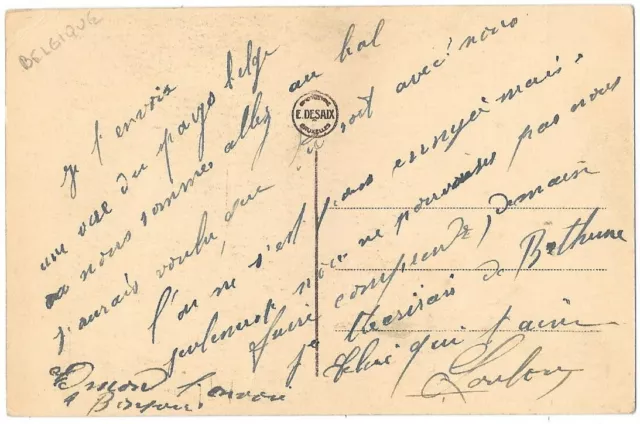 BELGIQUE
E. DESAIX
BRUXELLES
Je t'envois
une vue du pays belge
nous sommes allés au bal
j'aurais voulu que tu soit avec nous
l'on ne s'est pas ennuyé mais
seulement nous ne pouvions pas nous
faire comprendre, Demain
je t'écrirais de Bethune
Celui qui t'aime
Loulou